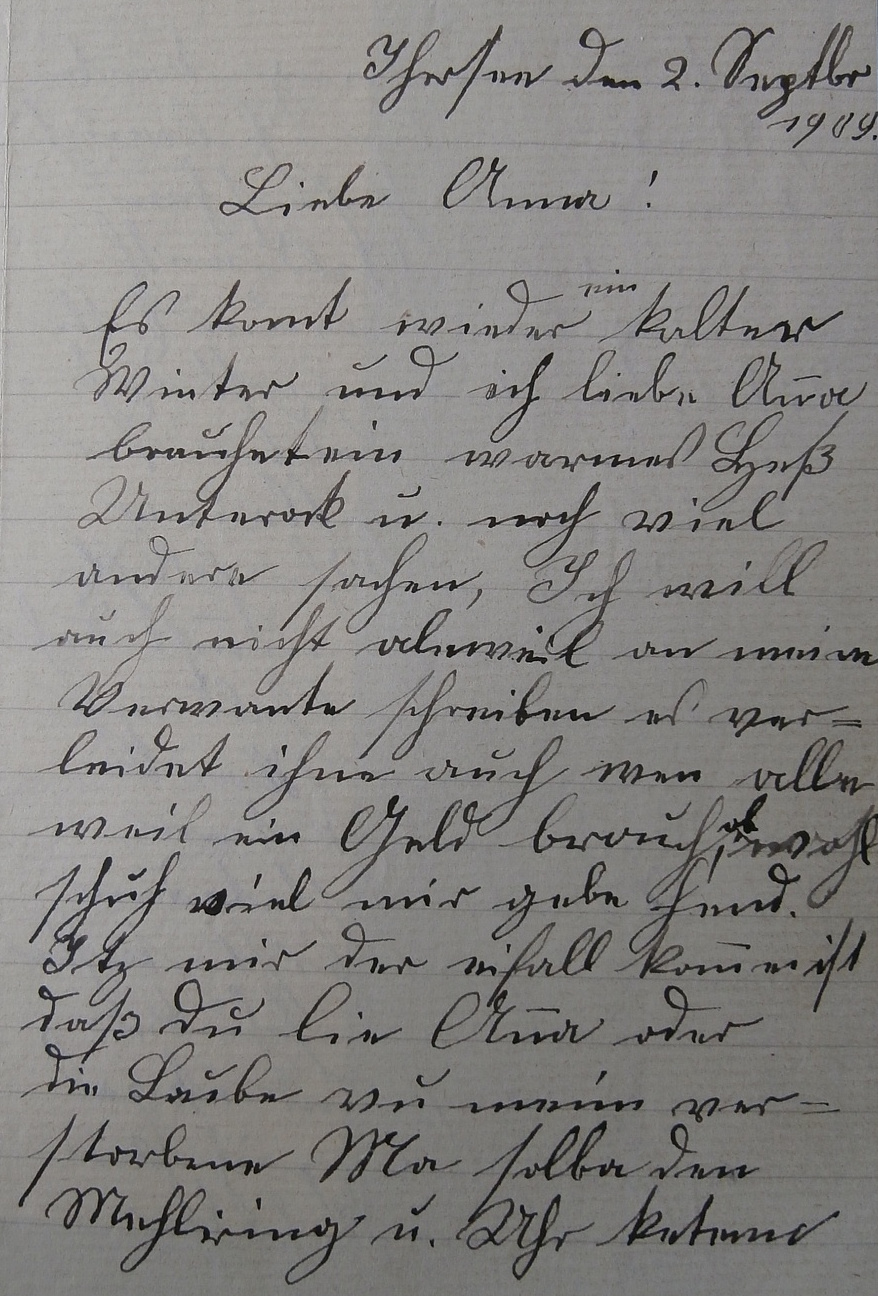 Thersee den 2. Septbr
1909.
Liebe Anna!
Es komt wieder ein kalter
Winter und ich liebe Ana
brauchet ein warmes
Unterock u. noch viel
andere sachen, Ich will
auch nicht aleweil an meine
Verwante schreiben es ver=
leidet ihne auch wen alle
weil ein Geld brauch, ob wohl
schuh viel mir gebe hend.
Itz mir der eifall komme ist
daß du lie Ana oder
die Laube vu meim ver=
storbene Ma solba den
ring u. Uhr ketene